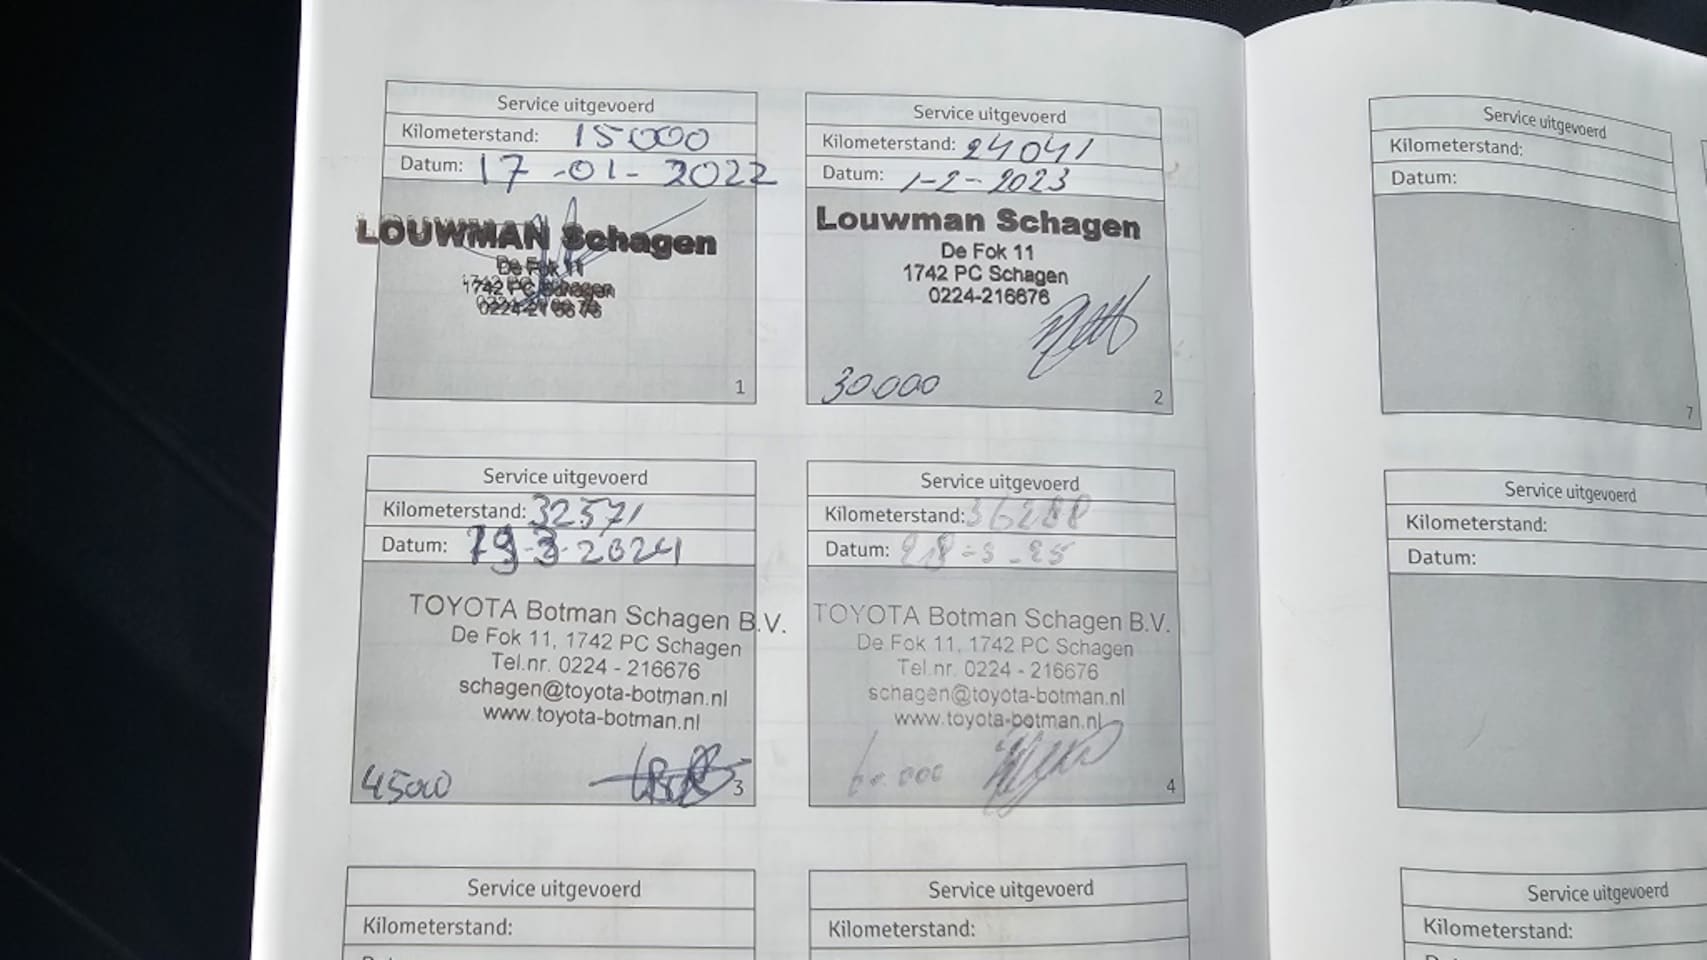 Service uitgevoerd
Kilometerstand: 15000
Datum: 17-01-2022
LOUWMAN Schagen
De Fok 11
1742 PC Schagen
0224-216676
1
Service uitgevoerd
Kilometerstand: 24041
Datum: 1-2-2023
Louwman Schagen
De Fok 11
1742 PC Schagen
0224-216676
30.000
2
Service uitgevoerd
Kilometerstand: 32571
Datum: 19-3-2024
TOYOTA Botman Schagen B.V.
De Fok 11, 1742 PC Schagen
Tel.nr. 0224 - 216676
schagen@toyota-botman.nl
www.toyota-botman.nl
45000
3
Service uitgevoerd
Kilometerstand: 36288
Datum:
TOYOTA Botman Schagen B.V.
De Fok 11, 1742 PC Schagen
Tel.nr. 0224 - 216676
schagen@toyota-botman.nl
www.toyota-botman.nl
60.000
4
Service uitgevoerd
Kilometerstand:
Service uitgevoerd
Kilometerstand:
Service uitgevoerd
Kilometerstand:
Datum:
7
Service uitgevoerd
Kilometerstand:
Datum:
Service uitgevoerd
Kilometerstand: